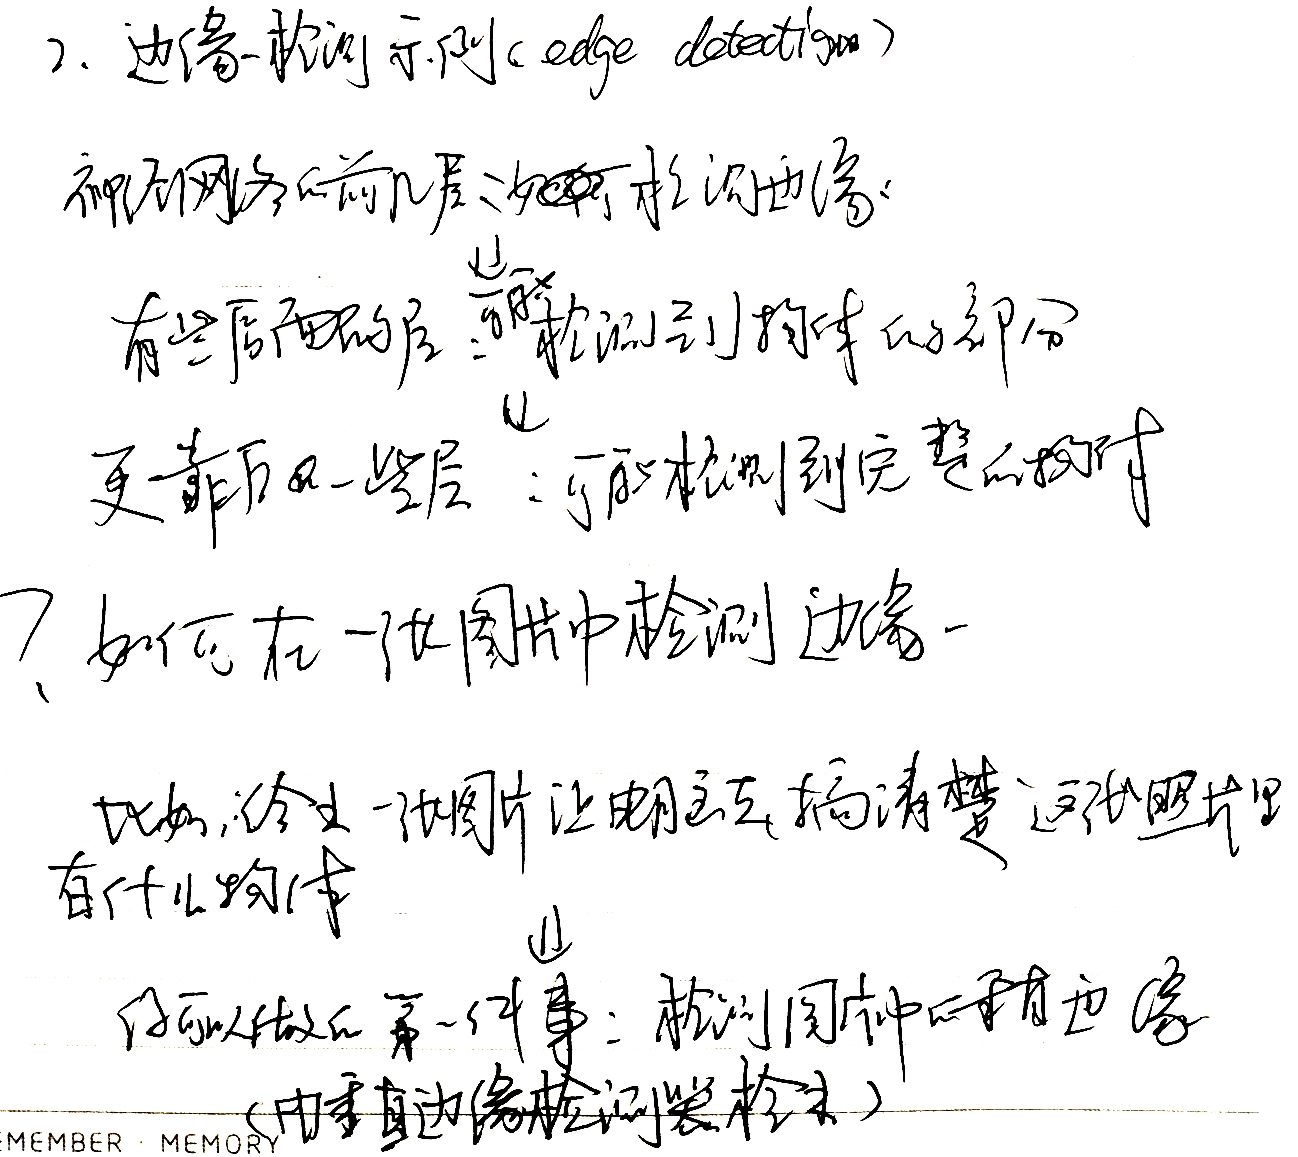 2. 边缘检测示例(edge detection)
神经网络的前几层:如何检测边缘.
⇓
有些后面的层:可能检测到物体的部分
⇓
更靠后的一些层:可能检测到完整的物体
? 如何在一张图片中检测边缘
比如:给出一张图片让电脑去搞清楚这张照片里
有什么物体
⇓
你可以做的第一件事:检测图片中的垂直边缘
(由垂直边缘检测器检测)
EMEMBER · MEMORY